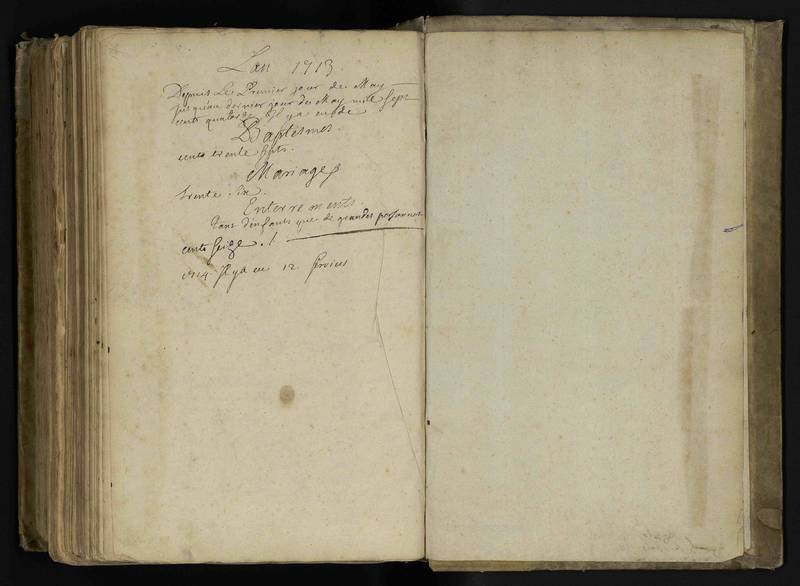 L'an 1713.
Depuis Le Premier jour de May
jusqu'au dernier jour de May mille sept
cents quatorse Il ya eu de
Baptesmes.
cents trente septs.
Mariages
trente six.
Enterrements.
Tans d'enfants que de grandes personnes
cents seize. /
1714 Il ya eu 12 services